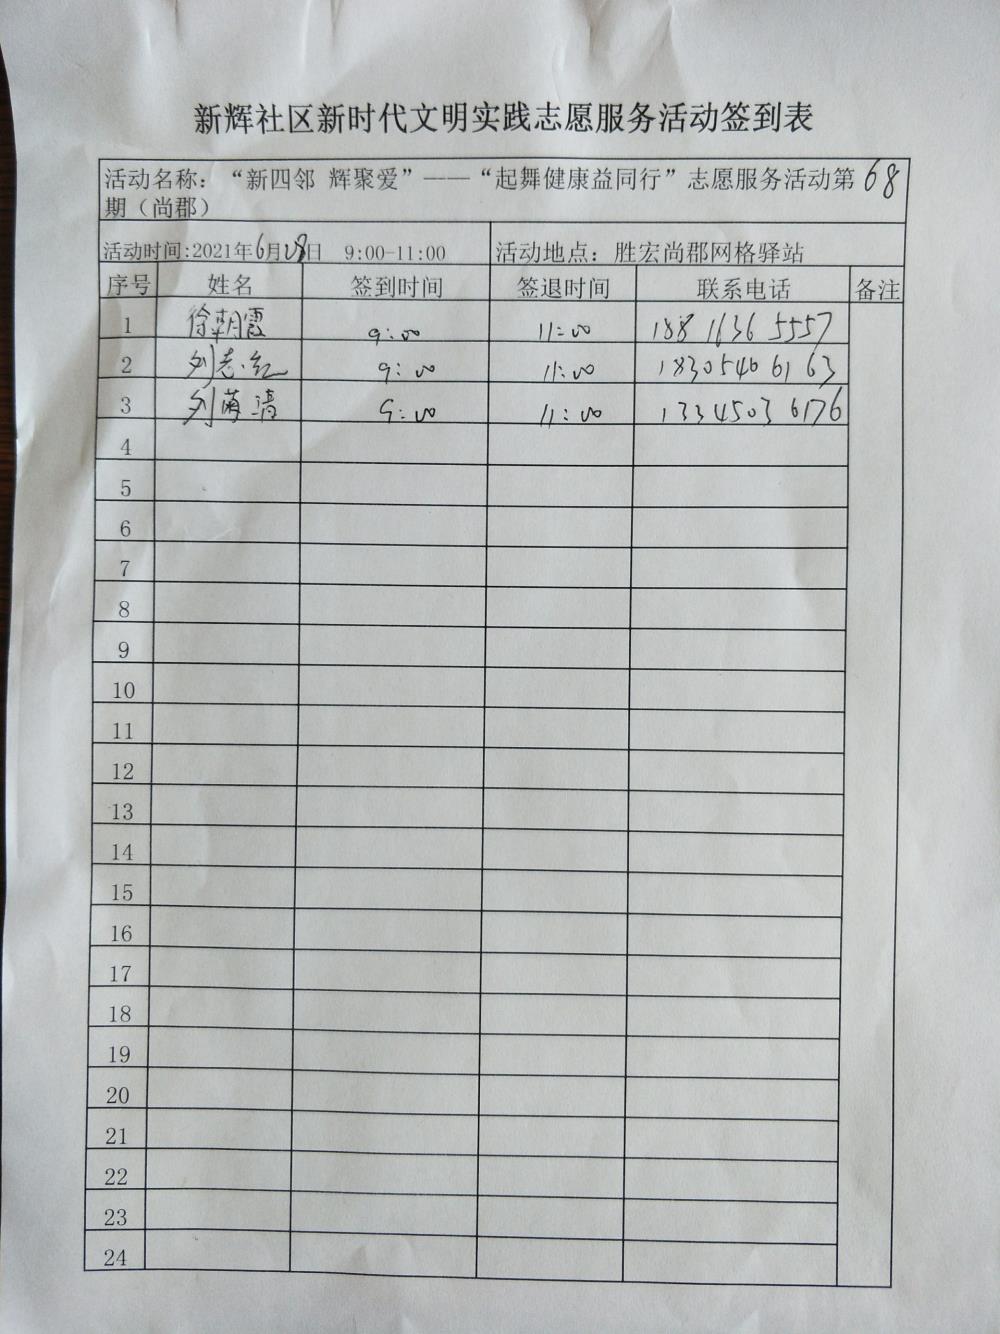 新辉社区新时代文明实践志愿服务活动签到表
活动名称：“新四邻 辉聚爱”——“起舞健康益同行”志愿服务活动第68
期（尚郡）
活动时间:2021年6月28日 9:00-11:00 活动地点：胜宏尚郡网格驿站
序号 姓名 签到时间 签退时间 联系电话 备注
1 徐朝霞 9:00 11:00 188 1636 5557
2 刘志红 9:00 11:00 18305406163
3 刘 清 9:00 11:00 13345036176
4
5
6
7
8
9
10
11
12
13
14
15
16
17
18
19
20
21
22
23
24